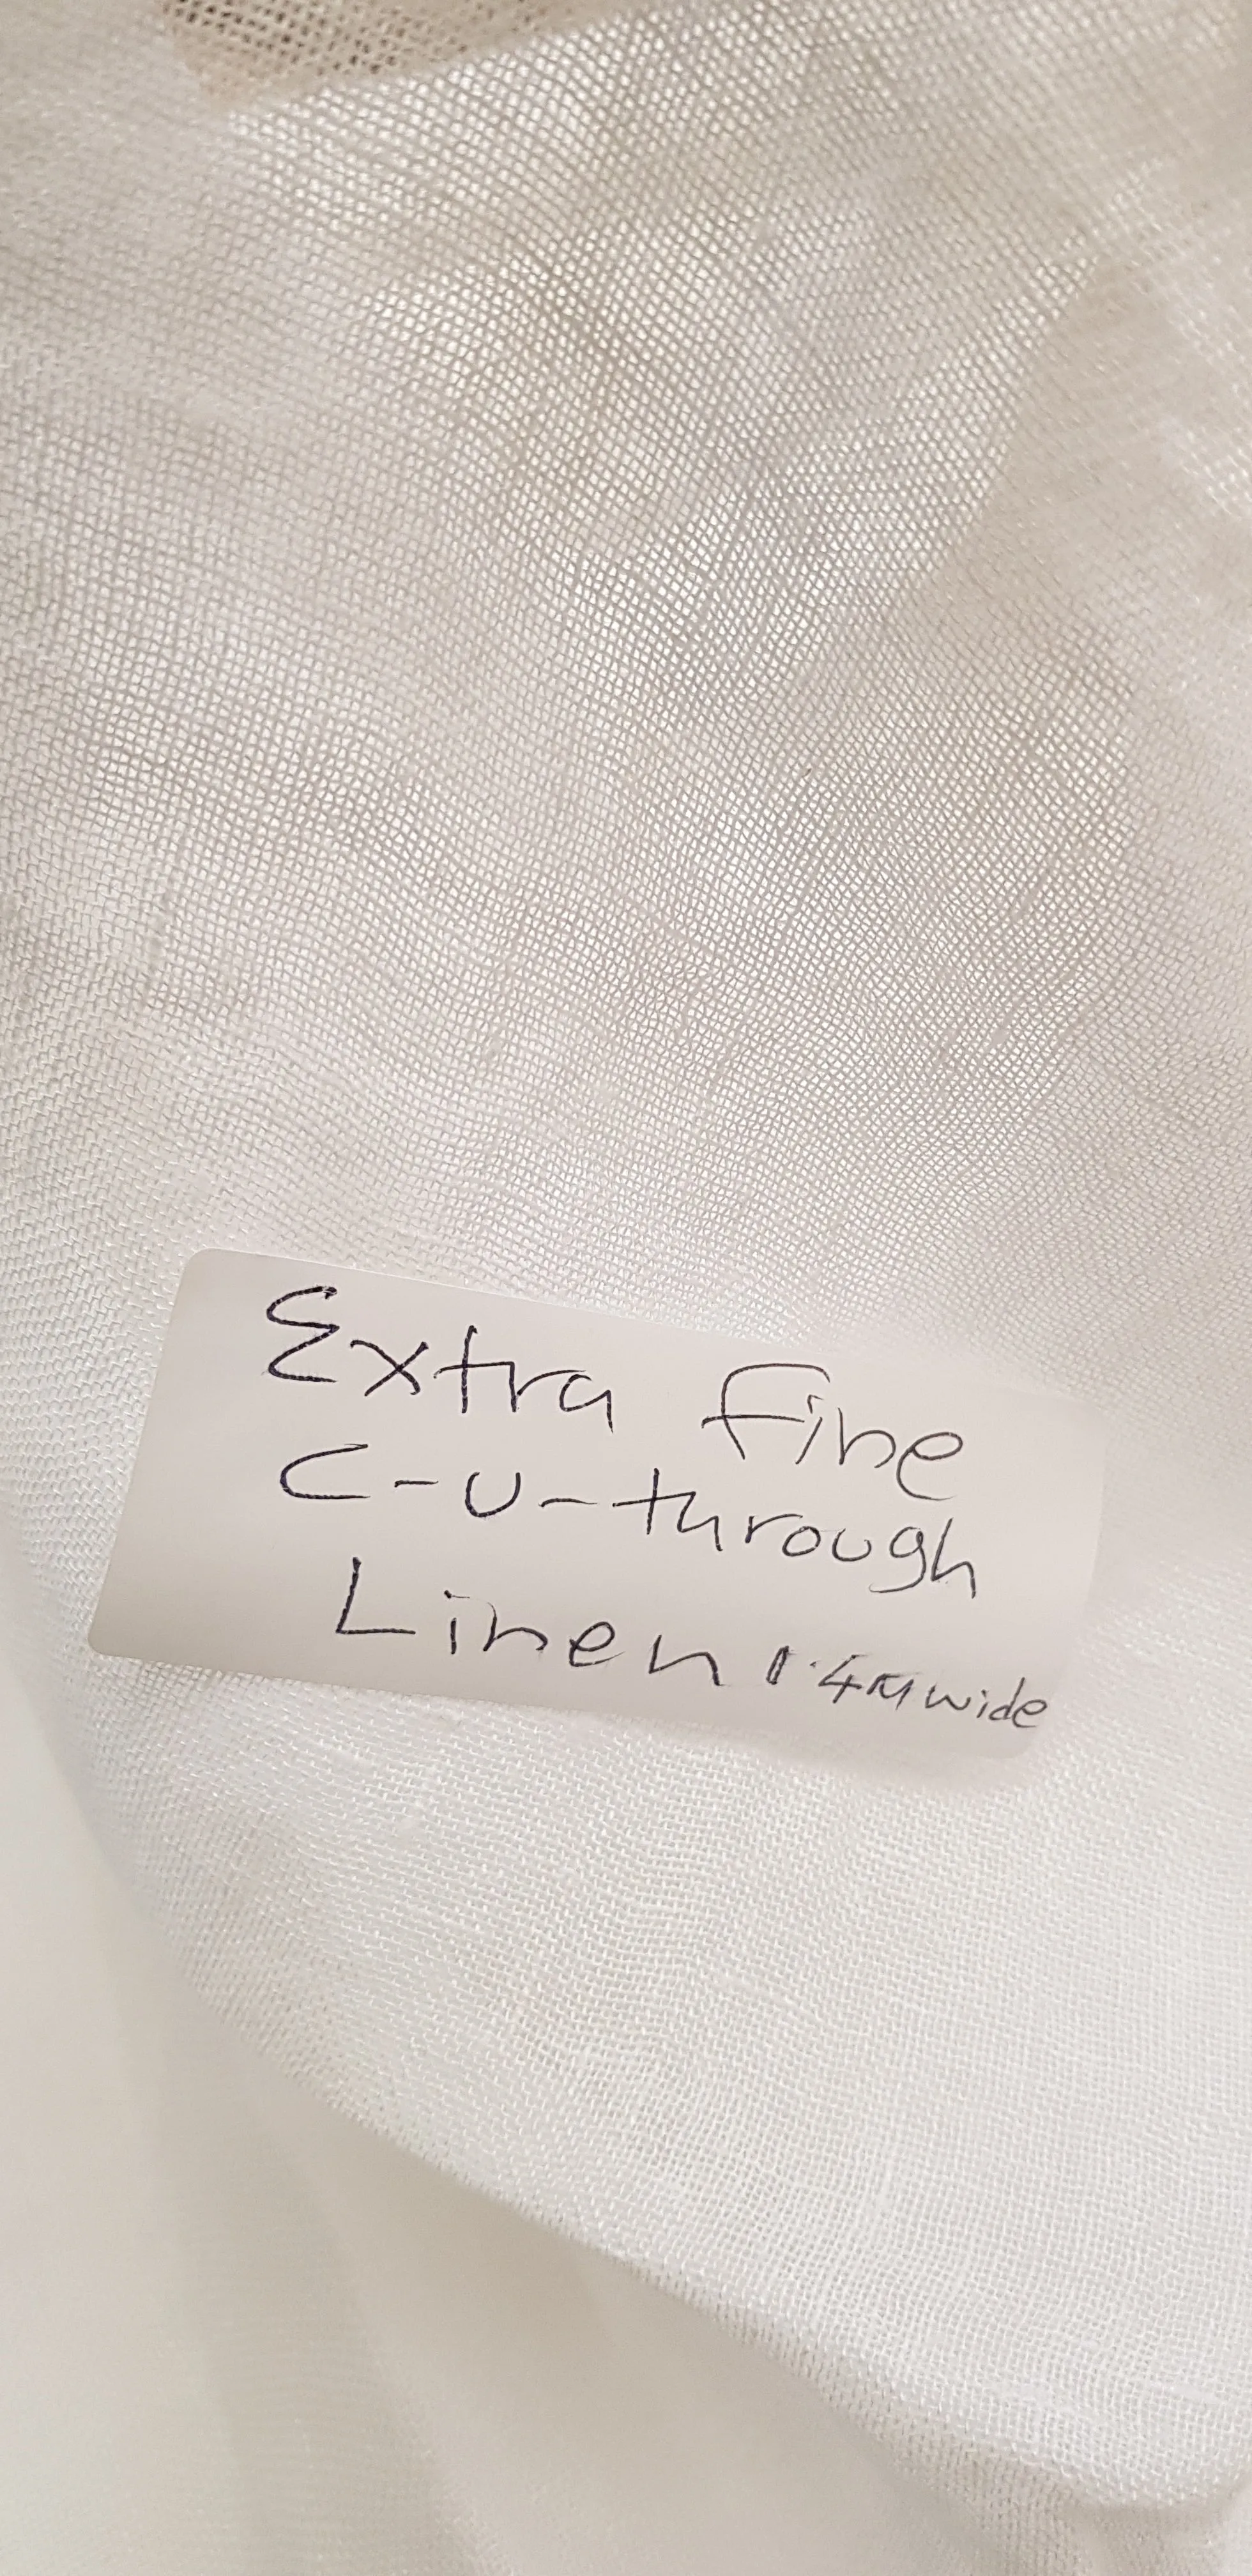 Extra fine
C-U-through
Linen 1.4M wide